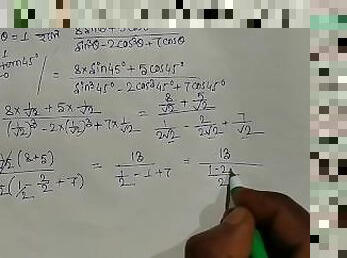 θ = 1 হলে 8sinθ + 5cosθ / sin³θ - 2cos³θ + 7cosθ
= 8×sin45° + 5cos45° / sin³45° - 2cos³45° + 7cos45°
8×1/√2 + 5×1/√2 / (1/√2)³ - 2×(1/√2)³ + 7×1/√2 = 8/√2 + 5/√2 / 1/2√2 - 2/2√2 + 7/√2
(8+5) / (1/2 - 2/2 + 7) = 13 / 1/2 - 1 + 7 = 13 / 1-2+